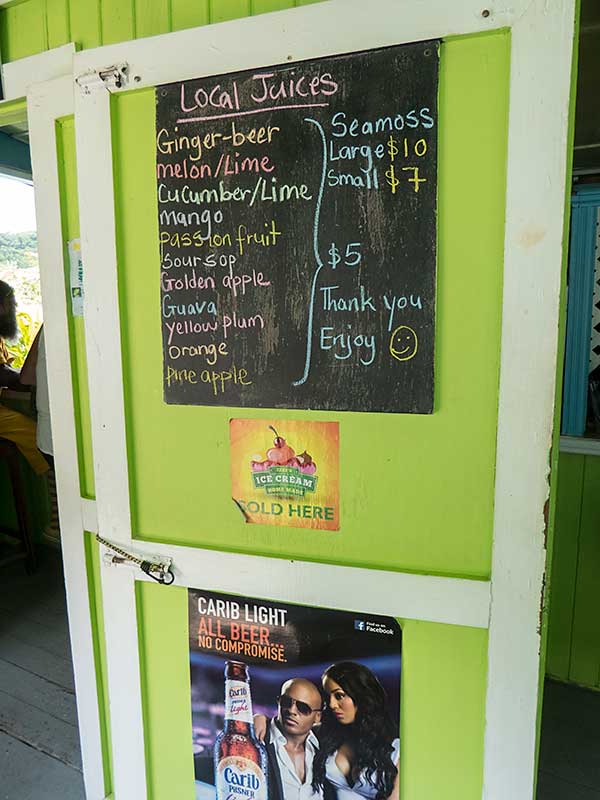 Local Juices
Ginger-beer
melon/Lime
Cucumber/Lime
mango
passion fruit
Soursop
Golden apple
Guava
yellow plum
orange
pine apple
Seamoss
Large $10
Small $7
$5
Thank you
Enjoy
ICE CREAM
HOME MADE
SOLD HERE
CARIB LIGHT
ALL BEER...
NO COMPROMISE.
Find us on
Facebook
Carib
Light
Carib
PILSNER